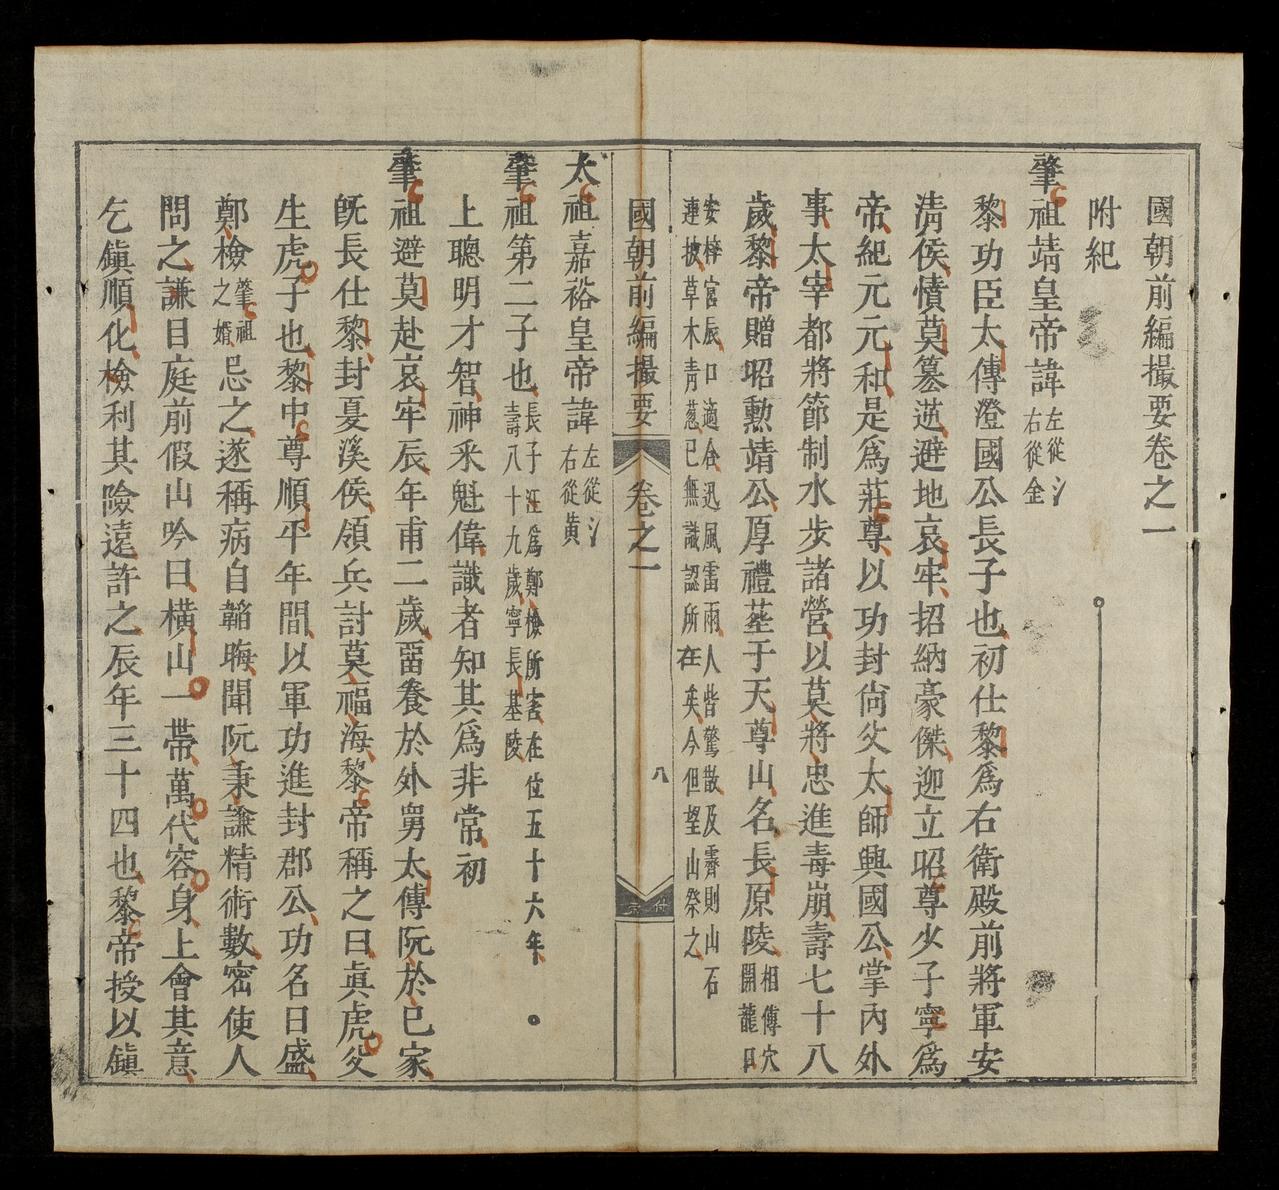 國朝前編撮要卷之一
附紀
肇祖靖皇帝諱左從氵右從金
黎功臣太傳澄國公長子也初仕黎爲右衛殿前將軍安
淸侯憤莫簒逆避地哀牢招納豪傑迎立昭尊少子寧爲
帝紀元元和是爲莊尊以功封尙父太師興國公掌內外
事太宰都將節制水步諸營以莫將忠進毒崩壽七十八
歲黎帝贈昭勲靖公厚禮塟于天尊山名長原陵相傳穴開龍口
安梓宮辰口適合迅風雷雨人皆驚散及霽則山石
連披草木青葱已無識認所在矣今但望山祭之
國朝前編撮要 卷之一 八
太祖嘉裕皇帝諱左從氵右從黄
肇祖第二子也長子汪爲鄭檢所害在位五十六年壽八十九歲寧長基陵
上聰明才智神采魁偉識者知其爲非常初
肇祖避莫赴哀牢辰年甫二歲畱養於外舅太傳阮於己家
旣長仕黎封夏溪侯領兵討莫福海黎帝稱之曰眞虎父
生虎子也黎中尊順平年間以軍功進封郡公功名日盛
鄭檢肇祖之婿忌之遂稱病自韜晦聞阮秉謙精術數密使人
問之謙目庭前假山吟曰橫山一帶萬代容身上會其意
乞鎭順化檢利其險遠許之辰年三十四也黎帝授以鎭